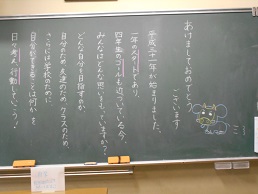 あけましておめでとう
ございます
平成三十一年が始まりました。
一年のスタートであり、
四年生のゴールも近づいている今、
みんなはどんな思いをもっていますか？
どんな自分を目指すのか、
自分のため、友達のため、クラスのため、
さらには学校のために
自分ができることは何かを
日々考え、行動していこう！